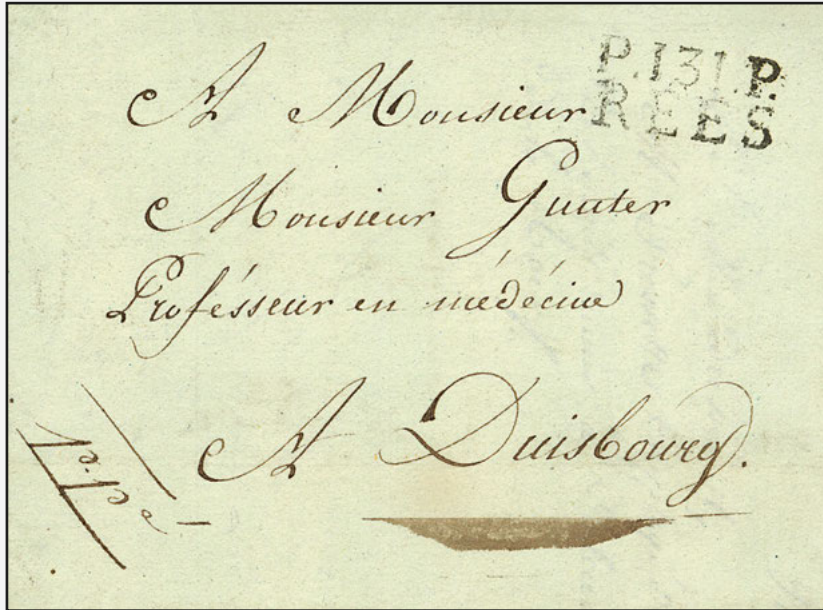 P.131.P.
REES
A Monsieur
Monsieur Gunter
Profésseur en médécine
A Duisbourg.